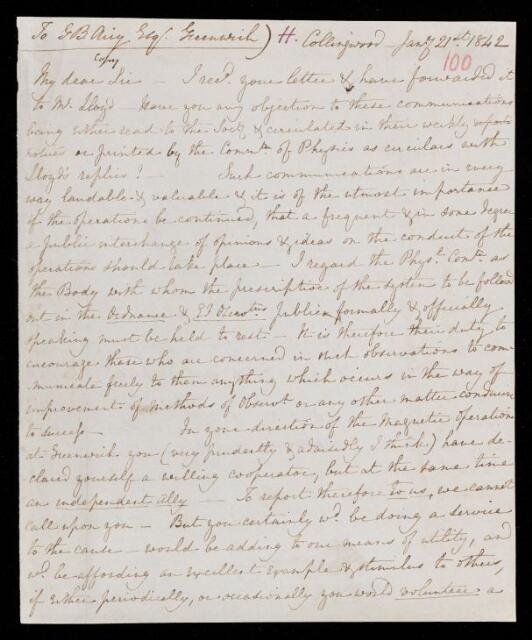 To G B Airy Esqr. Greenwich) H. Collingwood Jany 21st. 1842
Copy
100
My dear Sir – I recd. your letter & have forwarded it
to Mr. Lloyd – Have you any objection to these communications
being either read to the Socy. & circulated in their weekly reports
notices or printed by the Commee. of Physics as circulars with
Lloyd's replies? – Such communications are in every
way laudable & valuable & it is of the utmost importance
if the operations be continued, that a frequent & in some degree
a public interchange of opinions & ideas on the conduct of the
operations should take place – I regard the Physl. Comee. as
the Body with whom the prescription of the system to be followed
out in the Ordnance & EI publicly formally & officially
speaking must be held to rest – It is therefore their duty to
encourage those who are concerned in such observations to com-
municate freely to them anything which occurs in the way of
improvement of methods of Observn. or any other matter conducive
to success – In your direction of the Magnetic operations
at Greenwich you (very prudently & advisedly I think) have de-
clared yourself a willing cooperator, but at the same time
an independent ally – To report therefore to us, we cannot
call upon you – But you certainly wd. be doing a service
to the cause – would be adding to our means of utility, and
wd. be affording an excellent example & stimulus to others,
if either periodically, or occasionally you would volunteer a